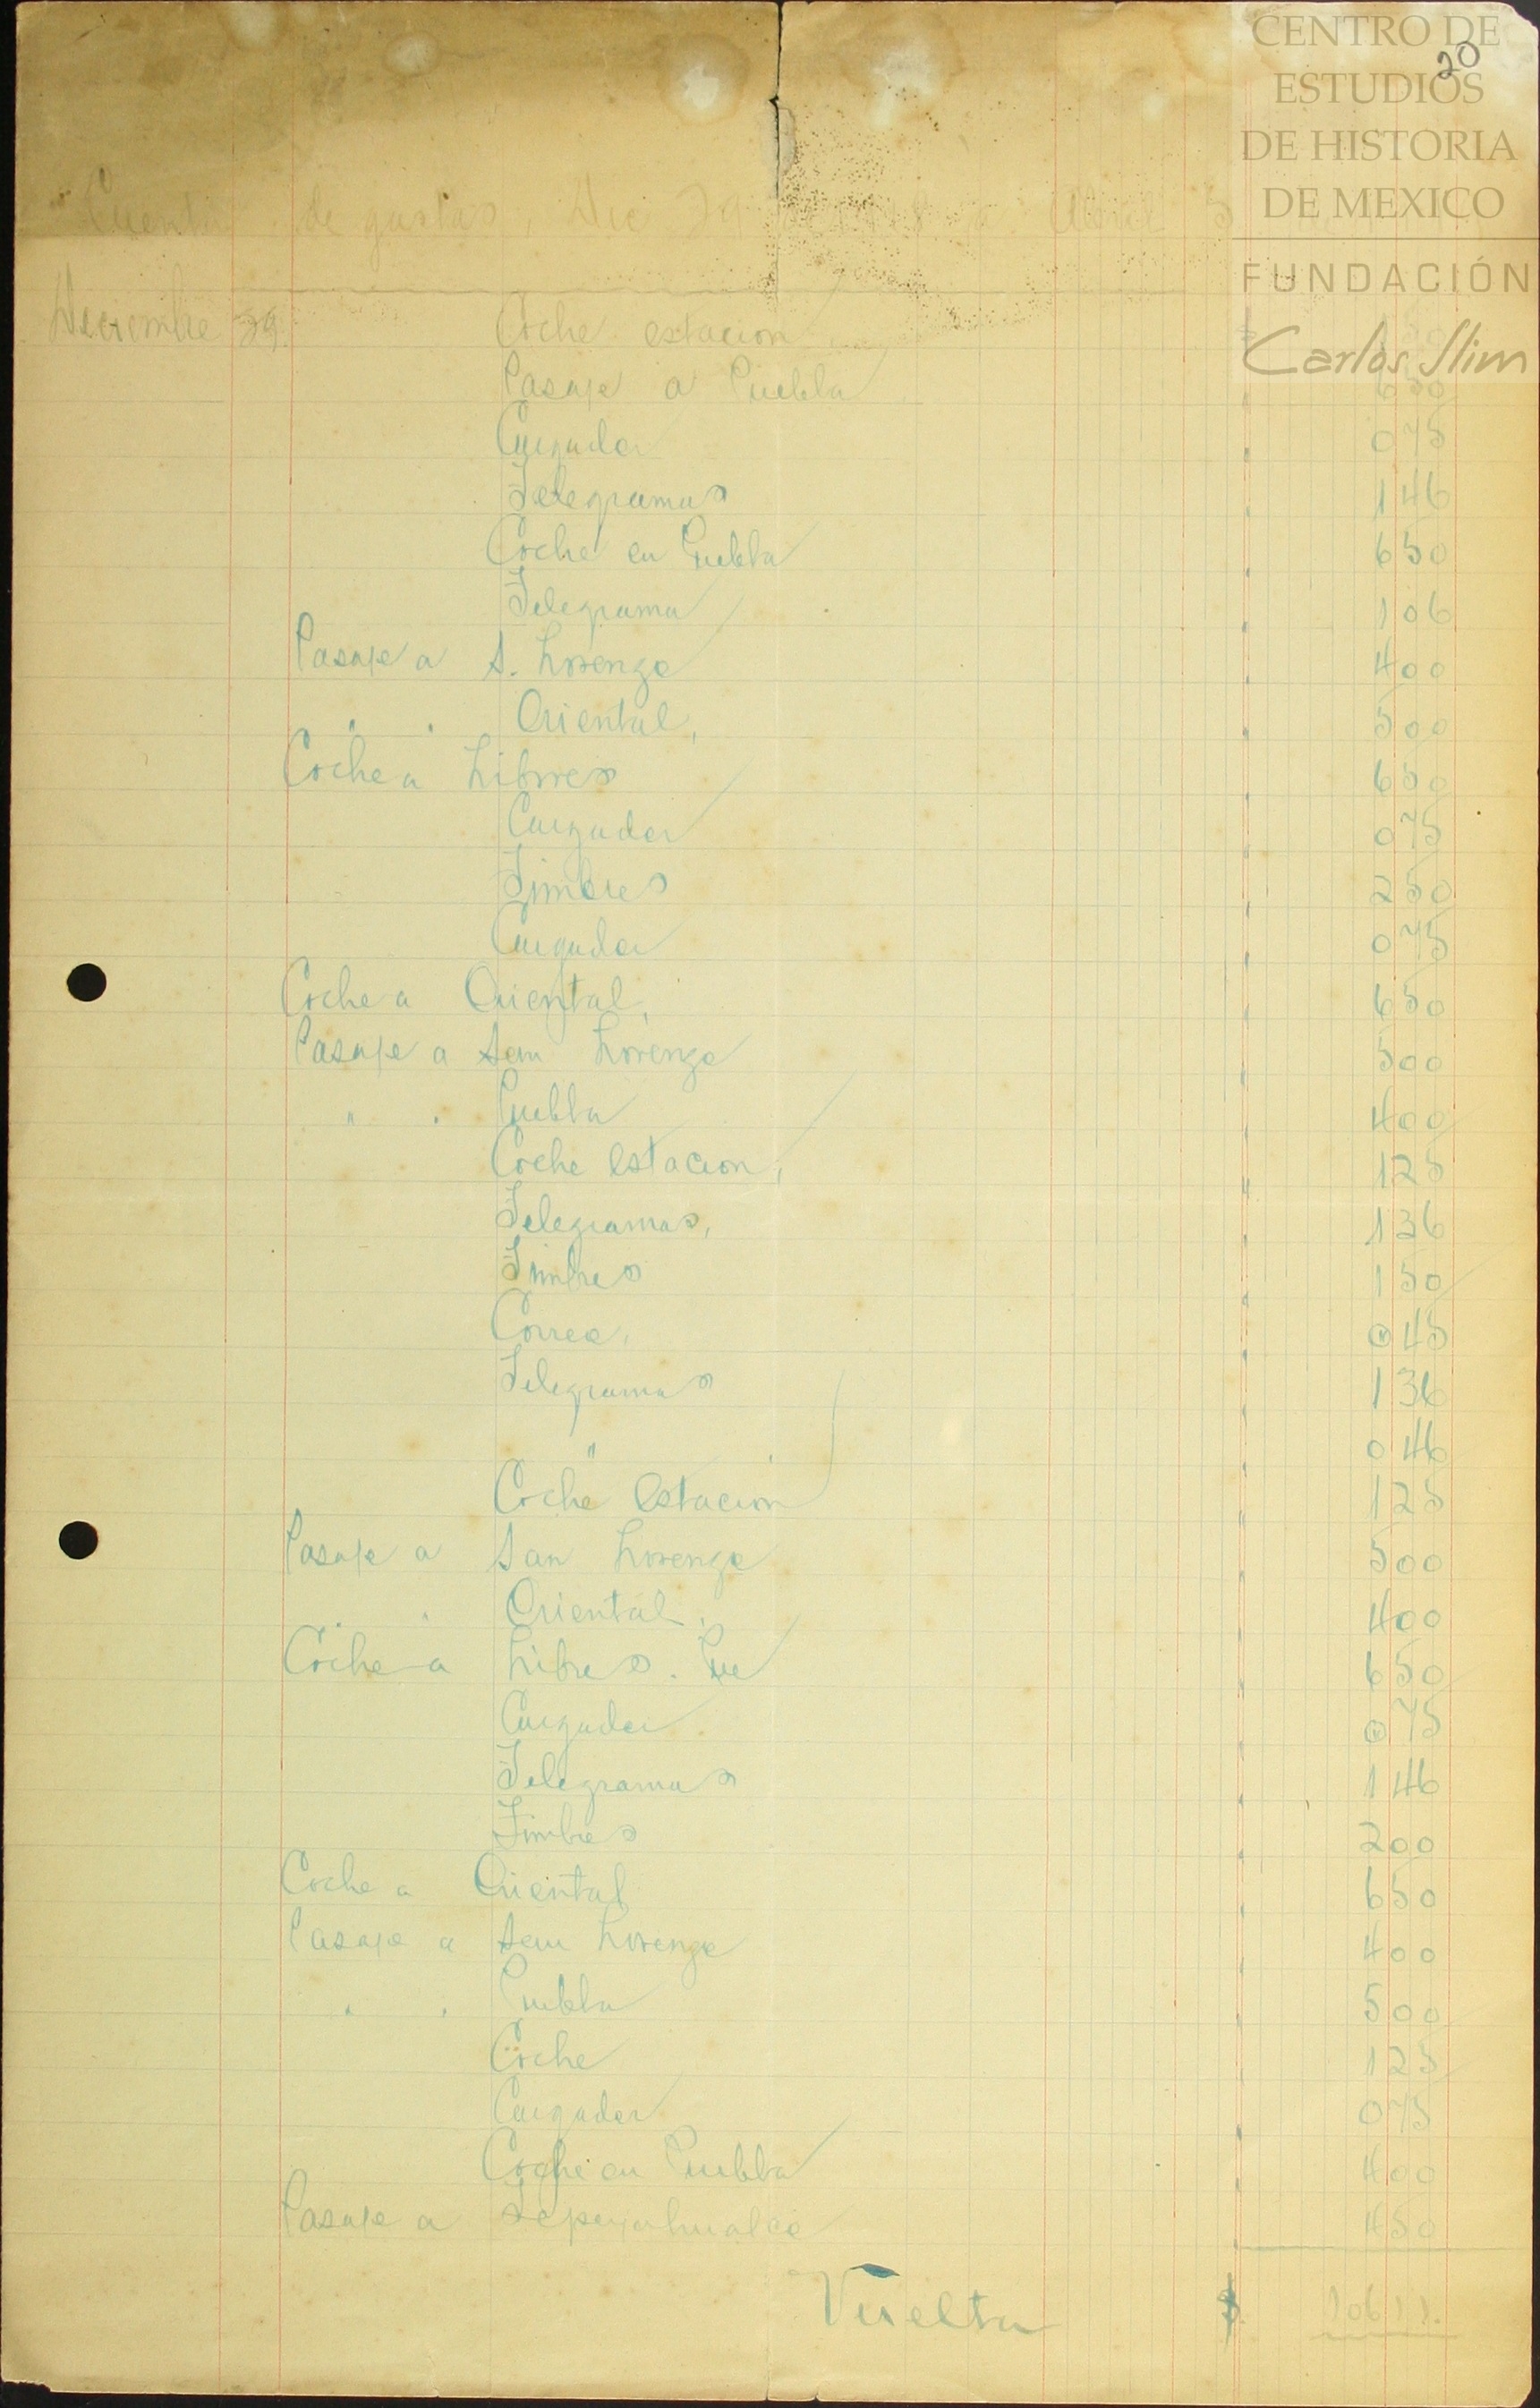 CENTRO DE
ESTUDIOS
DE HISTORIA
DE MEXICO
FUNDACIÓN
Carlos Slim
20
Cuenta de gastos, Dic 29 a Abril 3
Diciembre 29. Coche estacion
Pasaje a Puebla 650
Cargador 075
Telegramas 146
Coche en Puebla 650
Telegrama 106
Pasaje a S. Lorenzo 400
" " Oriental, 500
Coche a Libres 650
Cargador 075
Timbres 250
Cargador 075
Coche a Oriental, 650
Pasaje a San Lorenzo 500
" " Puebla 400
Coche estacion, 125
Telegramas, 136
Timbres 150
Correo, 045
Telegramas 136
" " 046
Coche estacion 125
Pasaje a San Lorenzo 500
" " Oriental, 400
Coche a Libres. Pue 650
Cargador 075
Telegramas 146
Timbres 200
Coche a Oriental 650
Pasaje a San Lorenzo 400
" " Puebla 500
Coche 125
Cargador 075
Coche en Puebla 400
Pasaje a 450
Vuelta $ 10611.